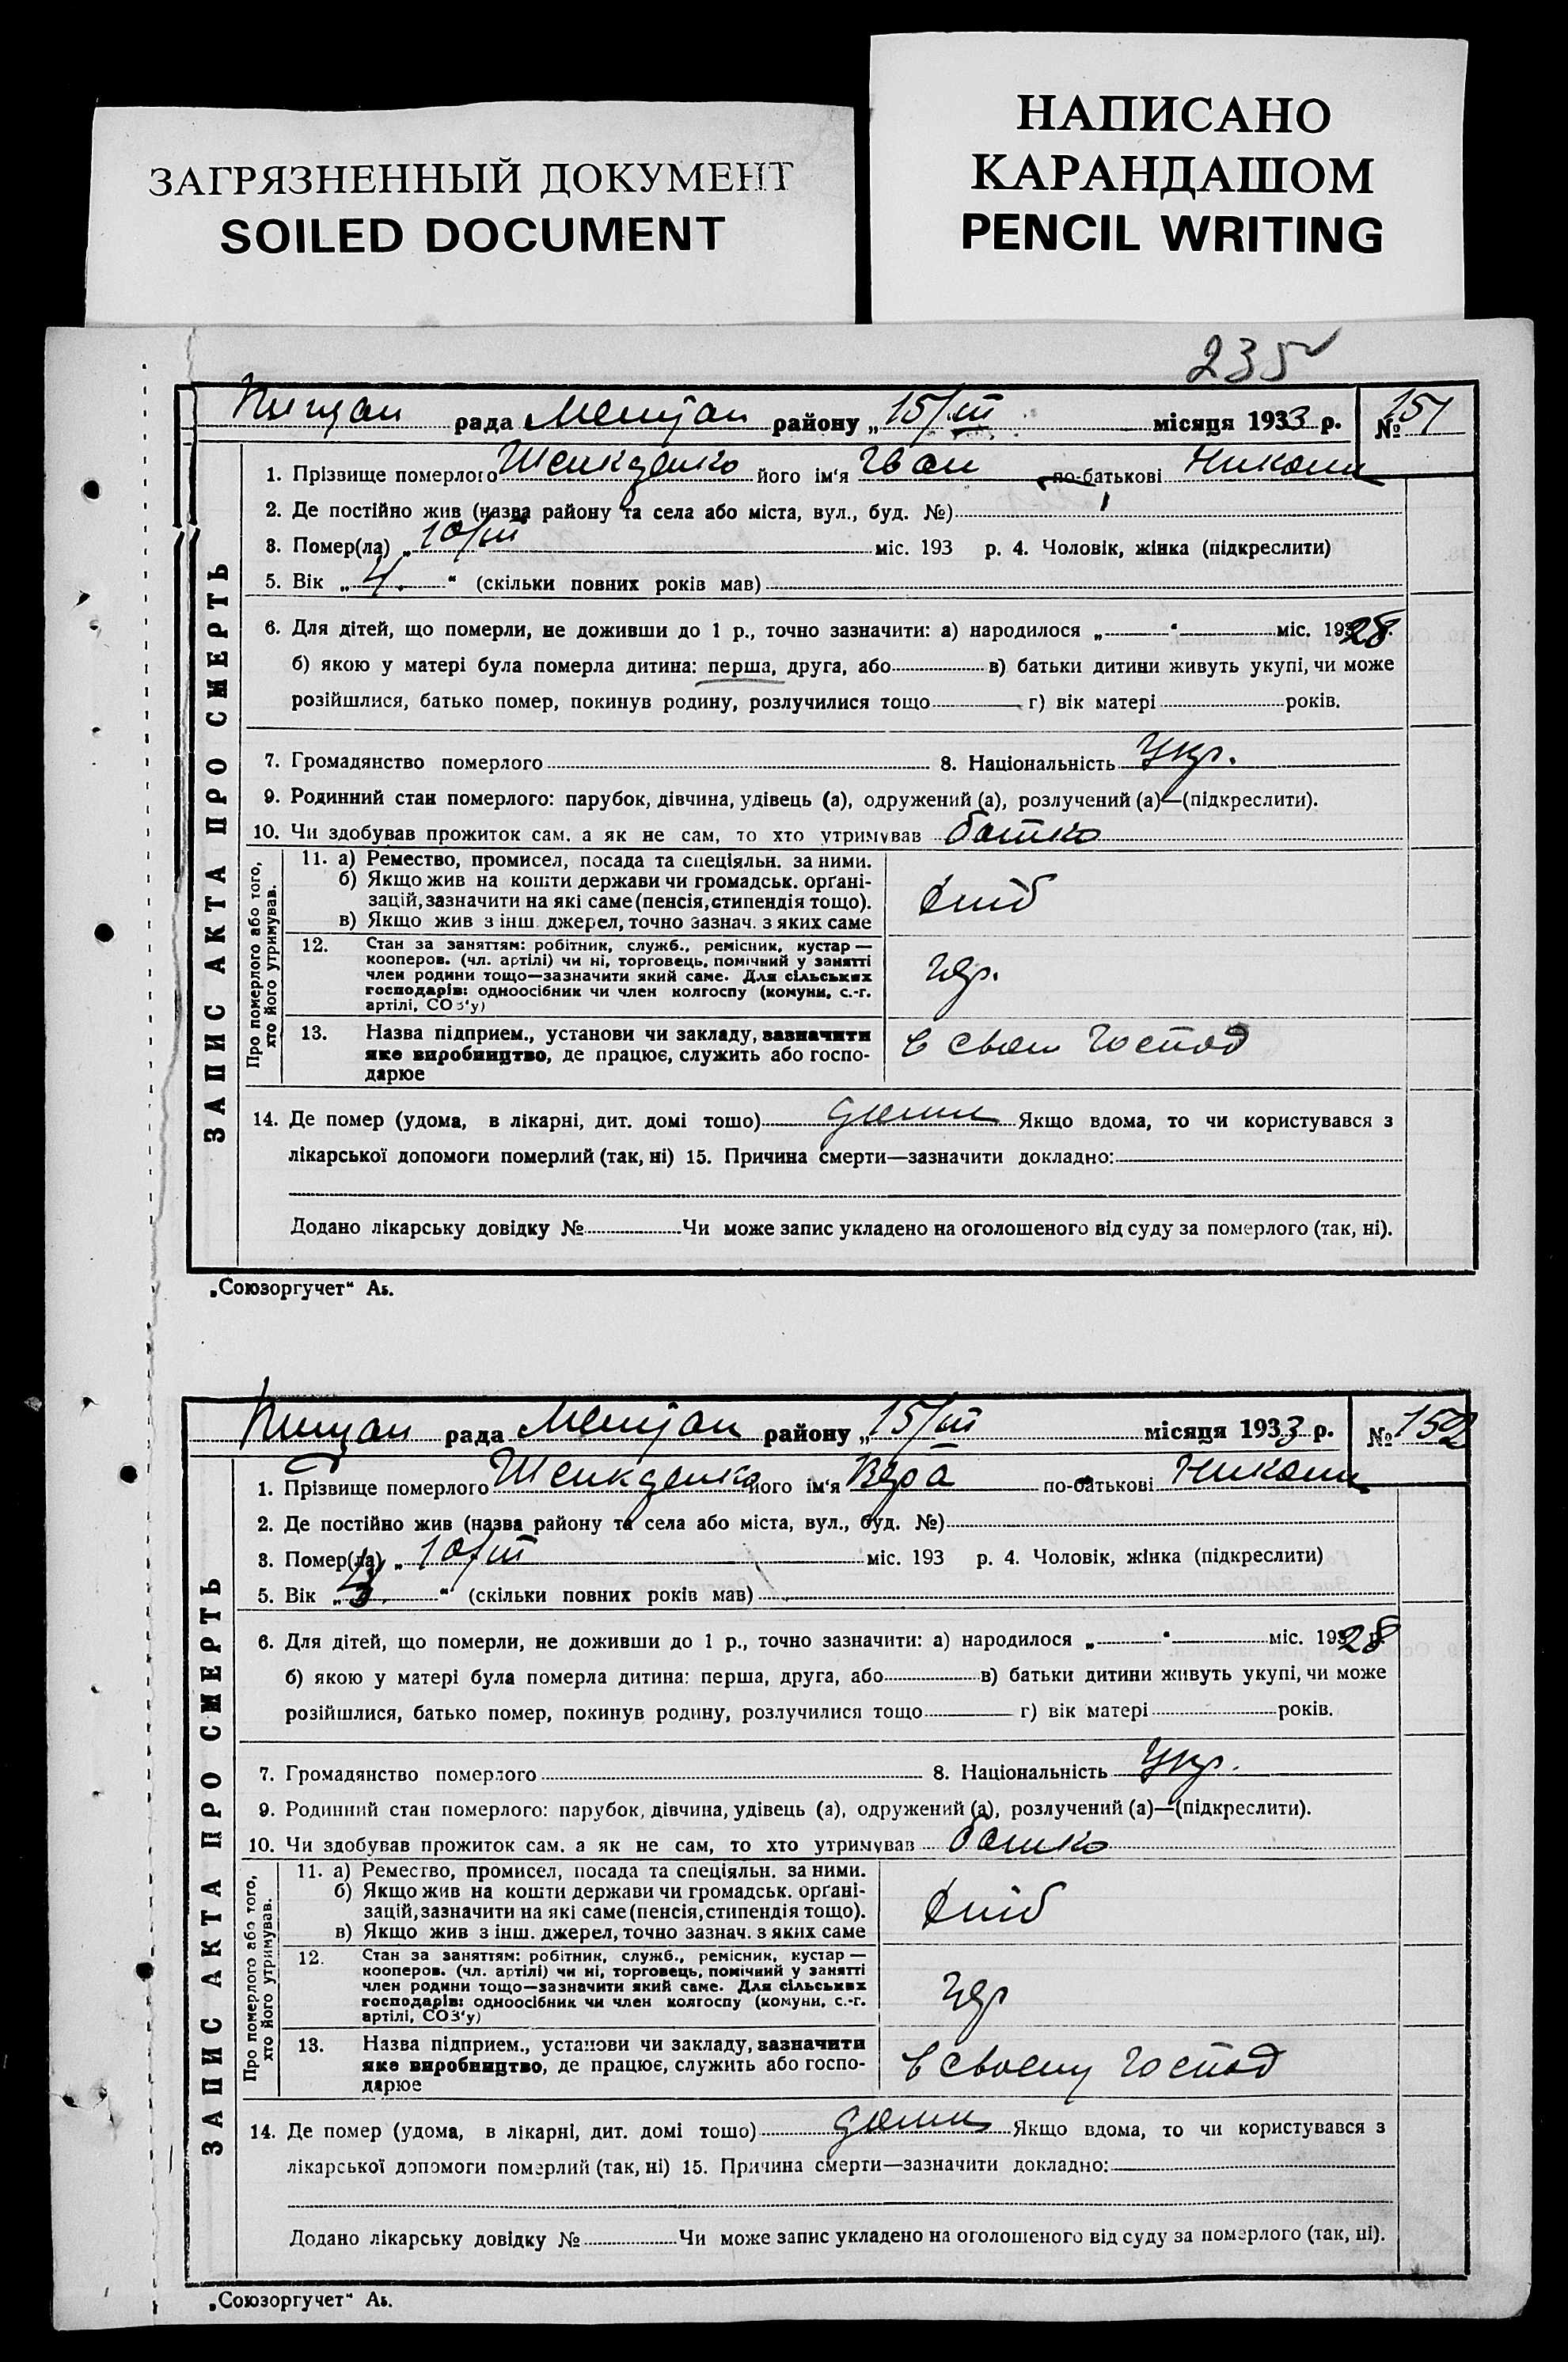 ЗАГРЯЗНЕННЫЙ ДОКУМЕНТ
SOILED DOCUMENT
НАПИСАНО
КАРАНДАШОМ
PENCIL WRITING
235
рада района „15/III місяця 1933 р. № 151
1. Прізвище померлого його ім'я Іван по-батькові Никони
2. Де постійно жив (назва району та села або міста, вул., буд. №)
3. Помер(ла) „10/III міс. 193 р. 4. Чоловік, жінка (підкреслити)
5. Вік „4." (скільки повних років мав)
6. Для дітей, що померли, не доживши до 1 р., точно зазначити: а) народилося „ " міс. 1928
б) якою у матері була померла дитина: перша, друга, або в) батьки дитини живуть укупі, чи може
розійшлися, батько помер, покинув родину, розлучилися тощо г) вік матері років.
7. Громадянство померлого 8. Національність Укр.
9. Родинний стан померлого: парубок, дівчина, удівець (а), одружений (а), розлучений (а)—(підкреслити).
10. Чи здобував прожиток сам, а як не сам, то хто утримував батько
ЗАПИС АКТА ПРО СМЕРТЬ
Про померлого або того,
хто його утримував.
11. а) Ремество, промисел, посада та спеціяльн. за ними.
б) Якщо жив на кошти держави чи громадськ. органі-
зацій, зазначити на які саме (пенсія, стипендія тощо).
в) Якщо жив з інш. джерел, точно зазнач. з яких саме
хліб
12. Стан за заняттям: робітник, служб., ремісник, кустар —
кооперов. (чл. артілі) чи ні, торговець, помічний у занятті
член родини тощо—зазначити який саме. Для сільських
господарів: одноосібник чи член колгоспу (комуни, с.-г.
артілі, СОЗ'у)
13. Назва підприєм., установи чи закладу, зазначити
яке виробництво, де працює, служить або госпо-
дарює
в своем господ
14. Де помер (удома, в лікарні, дит. домі тощо) Якщо вдома, то чи користувався з
лікарської допомоги померлий (так, ні) 15. Причина смерти—зазначити докладно:
Додано лікарську довідку № Чи може запис укладено на оголошеного від суду за померлого (так, ні).
„Союзоргучет" Аз.
рада району „15/III місяця 1933 р. № 152
1. Прізвище померлого його ім'я Вера по-батькові Никони
2. Де постійно жив (назва району та села або міста, вул., буд. №)
3. Помер(ла) „10/III міс. 193 р. 4. Чоловік, жінка (підкреслити)
5. Вік „ " (скільки повних років мав)
6. Для дітей, що померли, не доживши до 1 р., точно зазначити: а) народилося „ " міс. 1928 р.
б) якою у матері була померла дитина: перша, друга, або в) батьки дитини живуть укупі, чи може
розійшлися, батько помер, покинув родину, розлучилися тощо г) вік матері років.
7. Громадянство померлого 8. Національність Укр.
9. Родинний стан померлого: парубок, дівчина, удівець (а), одружений (а), розлучений (а)—(підкреслити).
10. Чи здобував прожиток сам, а як не сам, то хто утримував батько
ЗАПИС АКТА ПРО СМЕРТЬ
Про померлого або того,
хто його утримував.
11. а) Ремество, промисел, посада та спеціяльн. за ними.
б) Якщо жив на кошти держави чи громадськ. органі-
зацій, зазначити на які саме (пенсія, стипендія тощо).
в) Якщо жив з інш. джерел, точно зазнач. з яких саме
хліб
12. Стан за заняттям: робітник, служб., ремісник, кустар —
кооперов. (чл. артілі) чи ні, торговець, помічний у занятті
член родини тощо—зазначити який саме. Для сільських
господарів: одноосібник чи член колгоспу (комуни, с.-г.
артілі, СОЗ'у)
13. Назва підприєм., установи чи закладу, зазначити
яке виробництво, де працює, служить або госпо-
дарює
в своему господ
14. Де помер (удома, в лікарні, дит. домі тощо) Якщо вдома, то чи користувався з
лікарської допомоги померлий (так, ні) 15. Причина смерти—зазначити докладно:
Додано лікарську довідку № Чи може запис укладено на оголошеного від суду за померлого (так, ні).
„Союзоргучет" Аз.